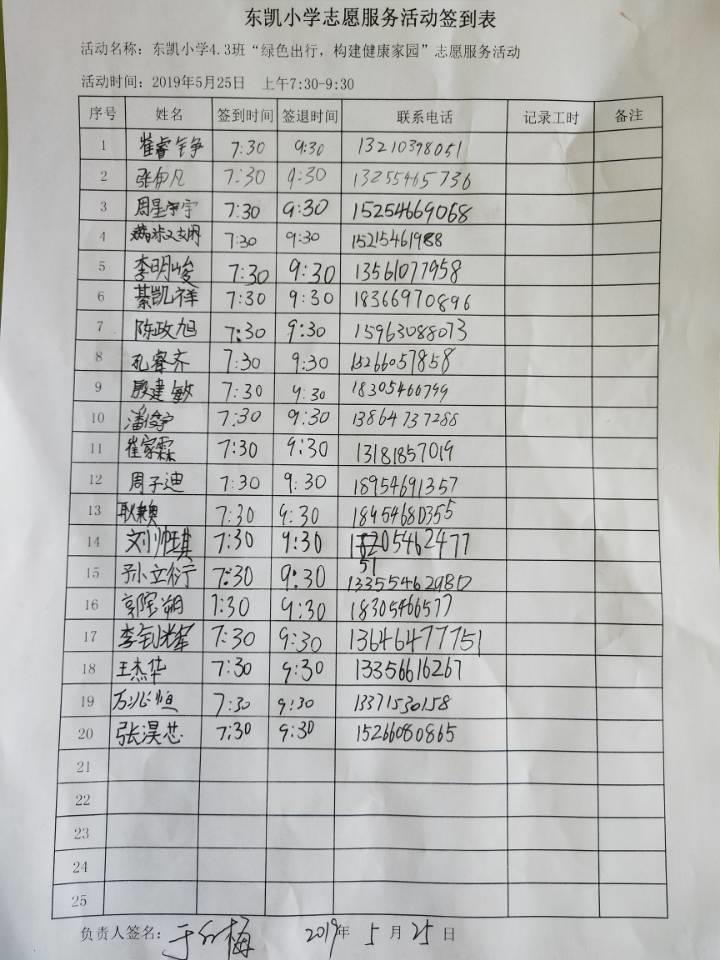 东凯小学志愿服务活动签到表
活动名称：东凯小学4.3班“绿色出行，构建健康家园”志愿服务活动
活动时间：2019年5月25日 上午7:30-9:30
序号 姓名 签到时间 签退时间 联系电话 记录工时 备注
1 崔睿铮 7:30 9:30 13210398051
2 张伊凡 7:30 9:30 13255465736
3 周星宇 7:30 9:30 15254669068
4 7:30 9:30 15215461988
5 李明峻 7:30 9:30 13561077958
6 綦凯祥 7:30 9:30 18366970896
7 陈政旭 7:30 9:30 15963088073
8 孔睿齐 7:30 9:30 15266057858
9 殷建敏 7:30 9:30 18305460799
10 潘俊宇 7:30 9:30 13864737288
11 崔家霖 7:30 9:30 13181857019
12 周子迪 7:30 9:30 18954691357
13 7:30 9:30 18454680355
14 刘帅琪 7:30 9:30 205462477
15 孙立衍 7:30 9:30 13355462980
16 7:30 9:30 18305466577
17 李钊辉 7:30 9:30 13646477751
18 王杰华 7:30 9:30 13356616267
19 万兆恒 7:30 9:30 13371530158
20 张淏芯 7:30 9:30 15266080865
21
22
23
24
25
负责人签名：于红梅 2019年 5月25日